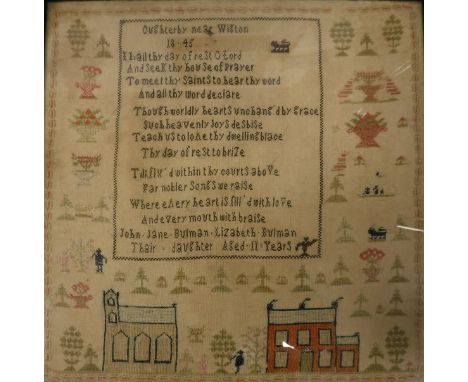 Oughterby near Wigton
18-45
I hail thy day of rest O Lord
And Seek thy house of Prayer
To meet thy Saints to hear thy word
And all thy word declare
Though worldly hearts unchangd by grace
Such heavenly Joys desbise
Teach us to lohe thy dwelling blace
Thy day of rest to brize
Till fix'd within thy courts above
Far nobler Songs we raise
Where every heart is fill'd with love
And every mouth with braise
John - Jane - Bulman - Elizabeth - Bulman
Thair - daughter Aged - 11 - Years